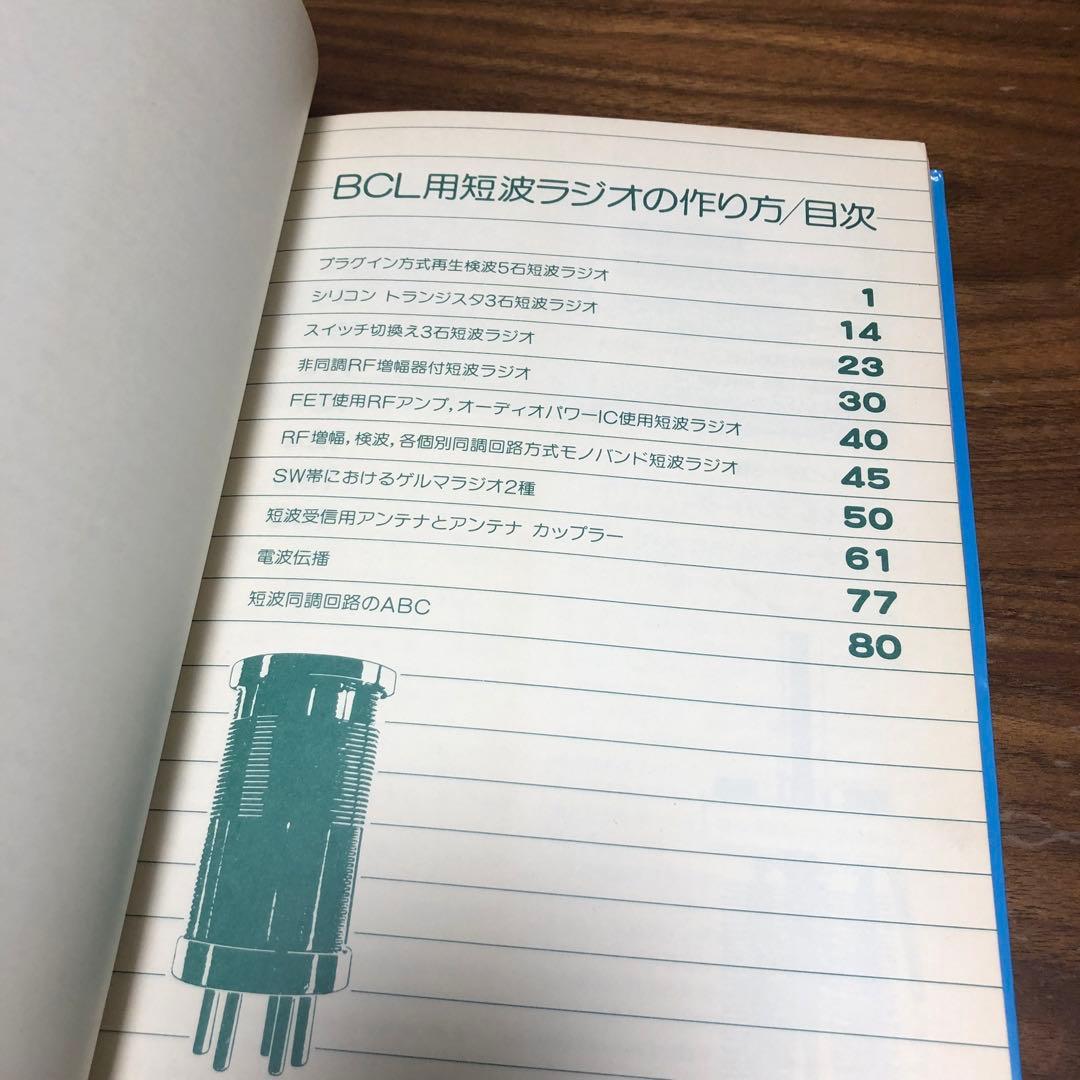 BCL用短波ラジオの作り方/目次
プラグイン方式再生検波5石短波ラジオ 1
シリコン トランジスタ3石短波ラジオ 14
スイッチ切換え3石短波ラジオ 23
非同調RF増幅器付短波ラジオ 30
FET使用RFアンプ,オーディオパワーIC使用短波ラジオ 40
RF増幅,検波,各個別同調回路方式モノバンド短波ラジオ 45
SW帯におけるゲルマラジオ2種 50
短波受信用アンテナとアンテナ カップラー 61
電波伝播 77
短波同調回路のABC 80